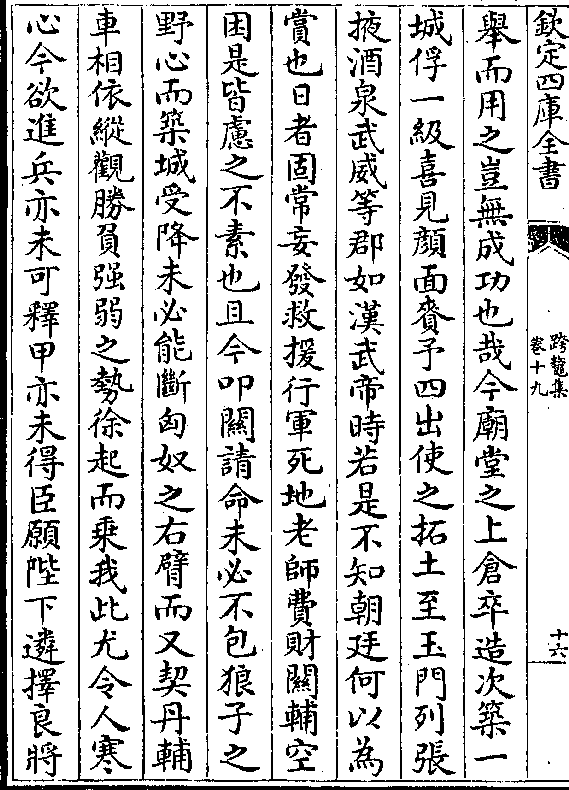 欽定四庫全書
跨鼇集
卷十九
十六
舉而用之豈無成功也哉今廟堂之上倉卒造次築一
城俘一級喜見顏面賚予四出使之拓土至玉門列張
掖酒泉武威等郡如漢武帝時若是不知朝廷何以為
賞也日者固常妄發救援行軍死地老師費財關輔空
困是皆慮之不素也且今叩關請命未必不包狼子之
野心而築城受降未必能斷匈奴之右臂而又契丹輔
車相依縱觀勝負强弱之勢徐起而乗我此尤令人寒
心今欲進兵亦未可釋甲亦未得臣願陛下遴擇良將